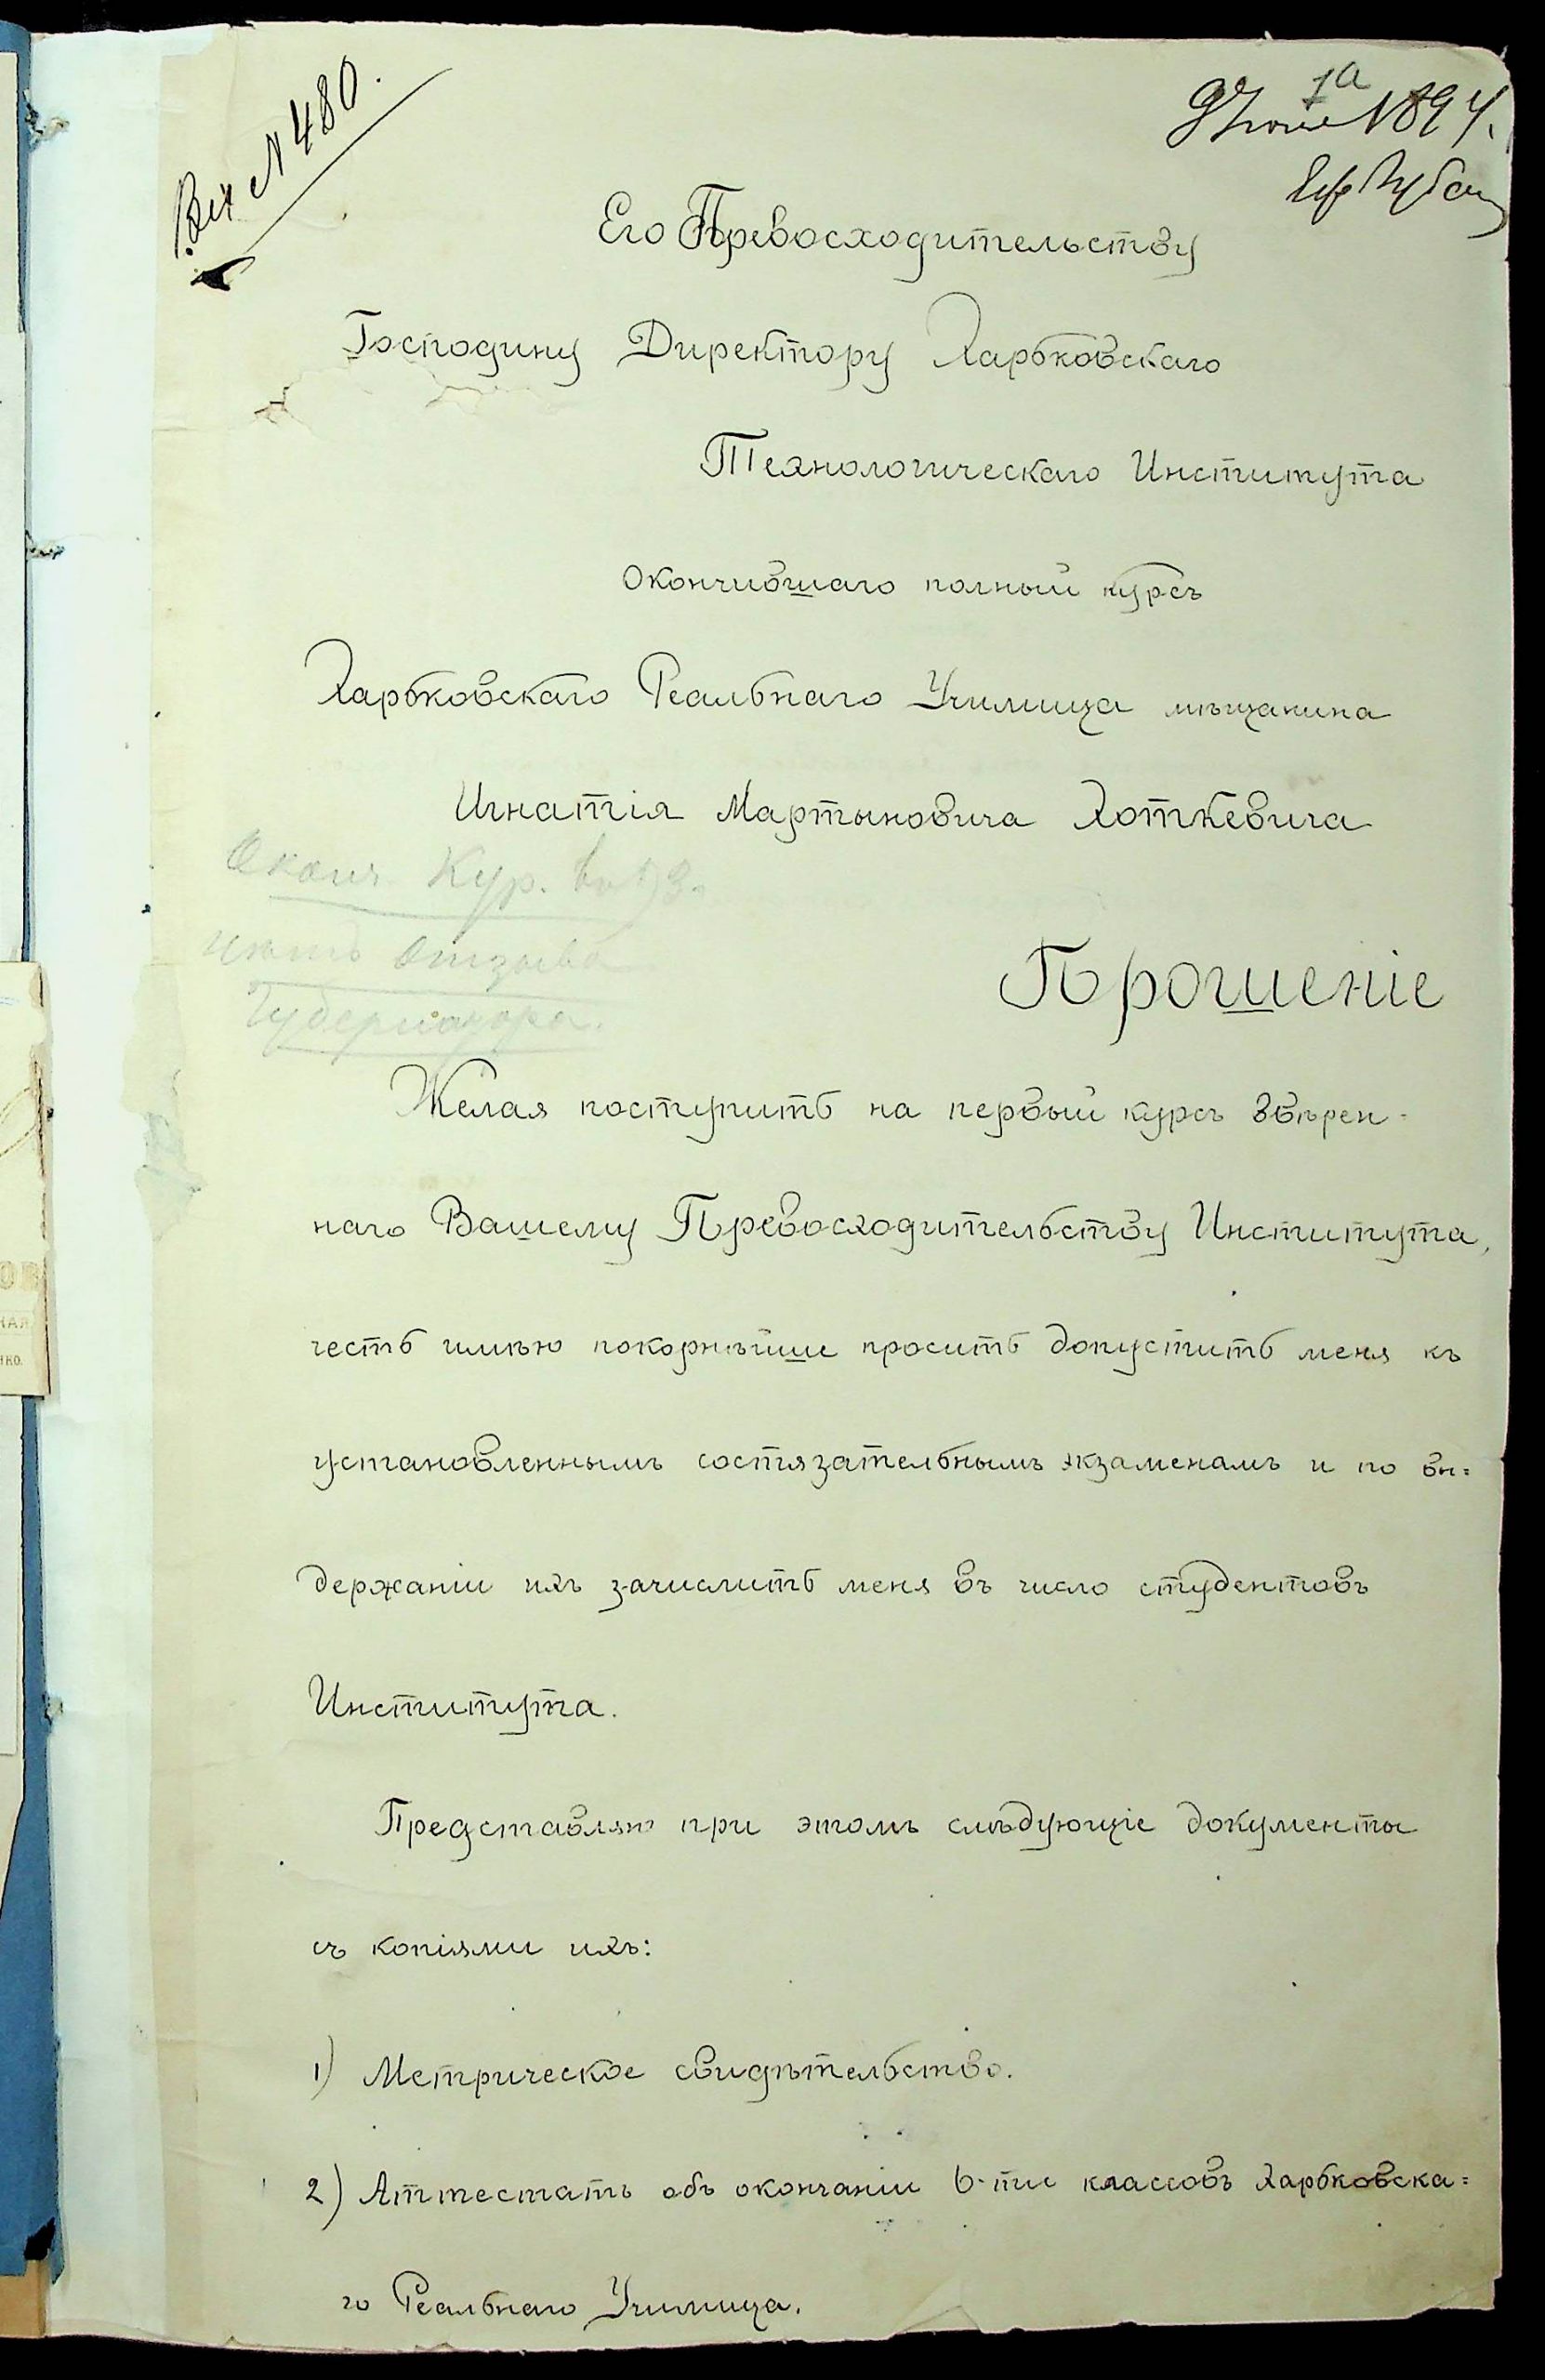 Вх № 480.
9 Іюня 1894.
Его Превосходительству
Господину Директору Харьковскаго
Технологическаго Института
Окончившаго полный курсъ
Харьковскаго Реальнаго Училища мѣщанина
Игнатія Мартыновича Хоткевича
Оконч. Кур. въ 93.
нѣтъ отзыва
Губернатора.
Прошеніе
Желая поступить на первый курсъ ввѣрен-
наго Вашему Превосходительству Института,
честь имѣю покорнѣйше просить допустить меня къ
установленнымъ состязательнымъ экзаменамъ и по вы=
держаніи ихъ зачислить меня въ число студентовъ
Института.
Представляю при этомъ слѣдующіе документы
съ копіями ихъ:
1) Метрическое свидѣтельство.
2) Аттестатъ объ окончаніи 6-ти классовъ Харьковска=
го Реальнаго Училища.